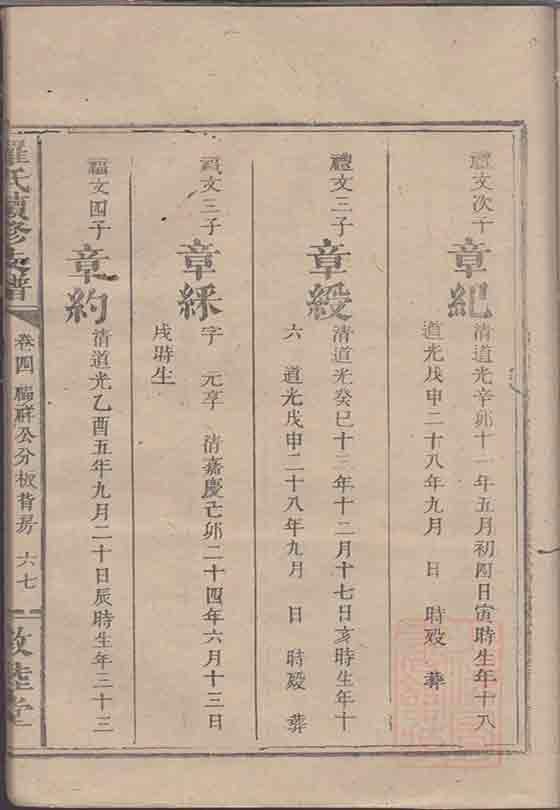 禮文次子 章紀 清道光辛卯十一年五月初四日寅時生年十八
道光戊申二十八年九月 日 時歿 葬
禮文三子 章綬 清道光癸巳十三年十二月十七日亥時生年十
六 道光戊申二十八年九月 日 時歿 葬
福文三子 章綵 字 元亨 清嘉慶己卯二十四年六月十三日
戌時生
福文四子 章約 清道光乙酉五年九月二十日辰時生年三十三
羅氏續修支譜 卷四 福祥公分板背房 六七 敦睦堂